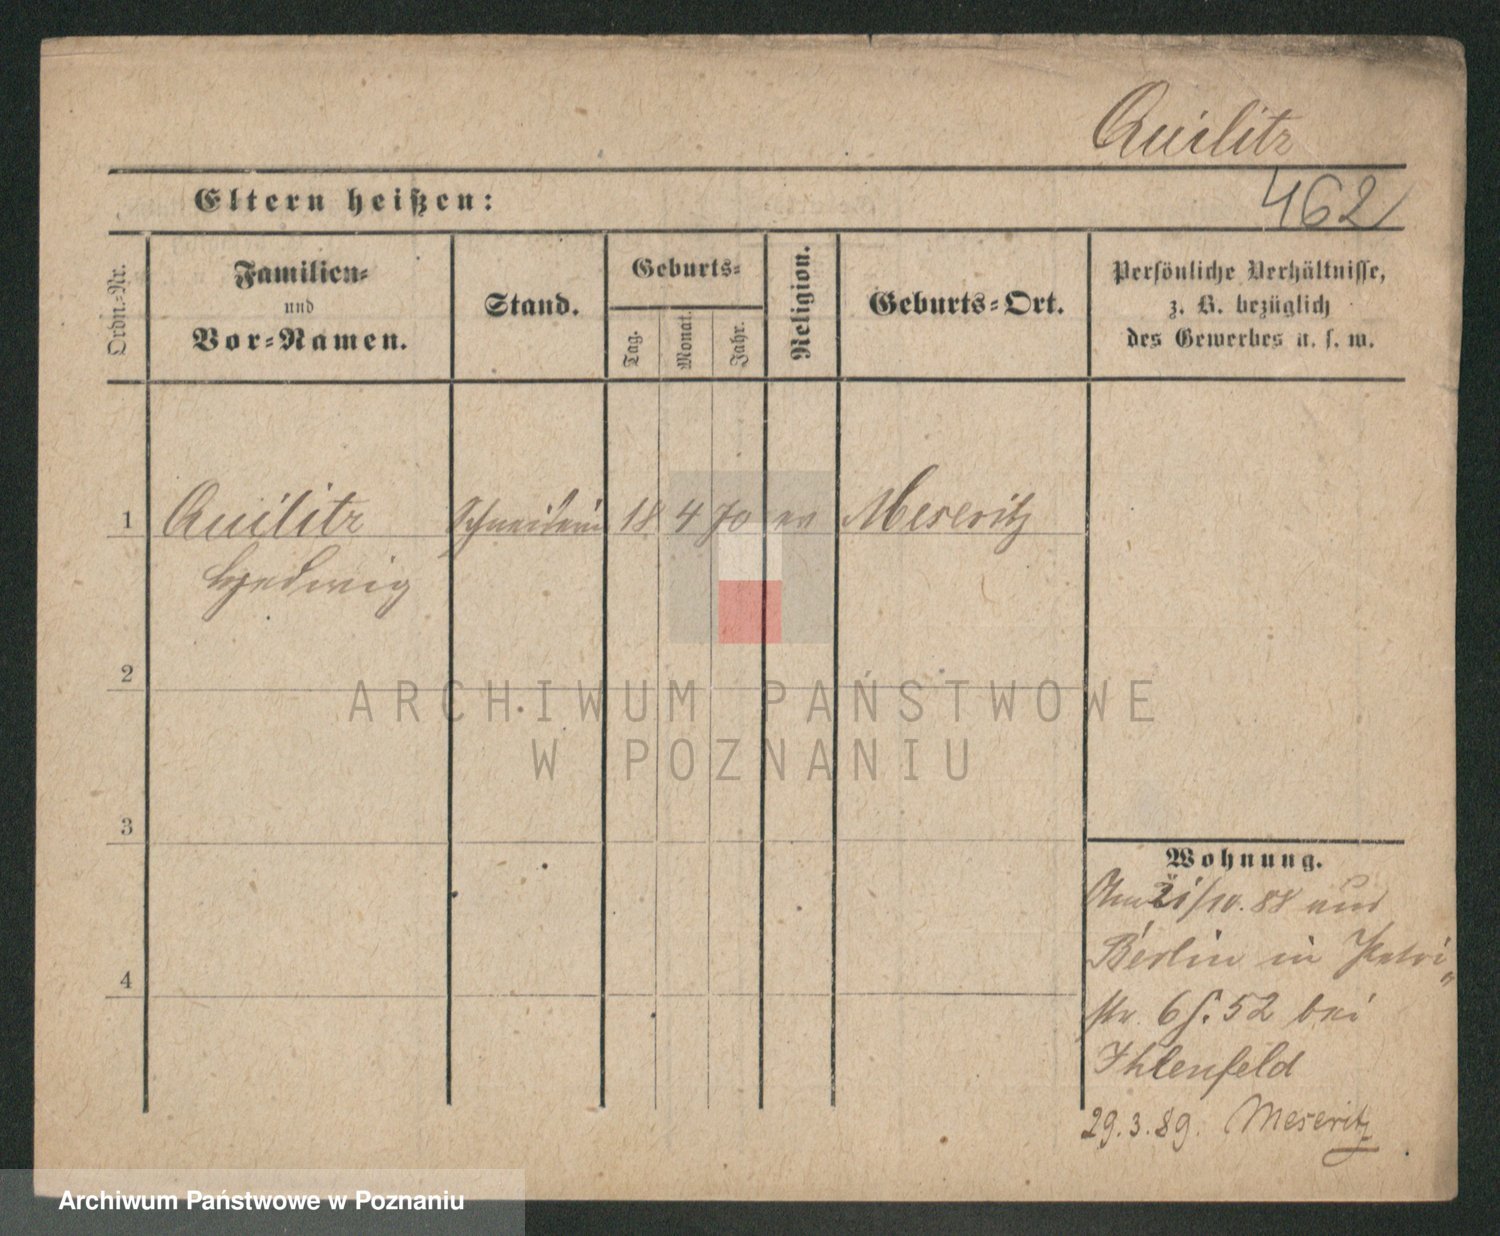 Quilitz
462
Eltern heißen:
Ordn.-Nr.
Familien-
und
Vor-Namen.
Stand.
Geburts-
Tag.
Monat.
Jahr.
Religion.
Geburts-Ort.
Persönliche Verhältnisse,
z. B. bezüglich
des Gewerbes u. s. w.
1 Quilitz Schneiderin 18 4 70 ev Meseritz
Hedwig
2
ARCHIWUM PAŃSTWOWE
W POZNANIU
3
Wohnung.
21/10. 88 aus
Berlin in Petri
4
str. 6 52 bei
Ihlenfeld
29.3.89. Meseritz
Archiwum Państwowe w Poznaniu